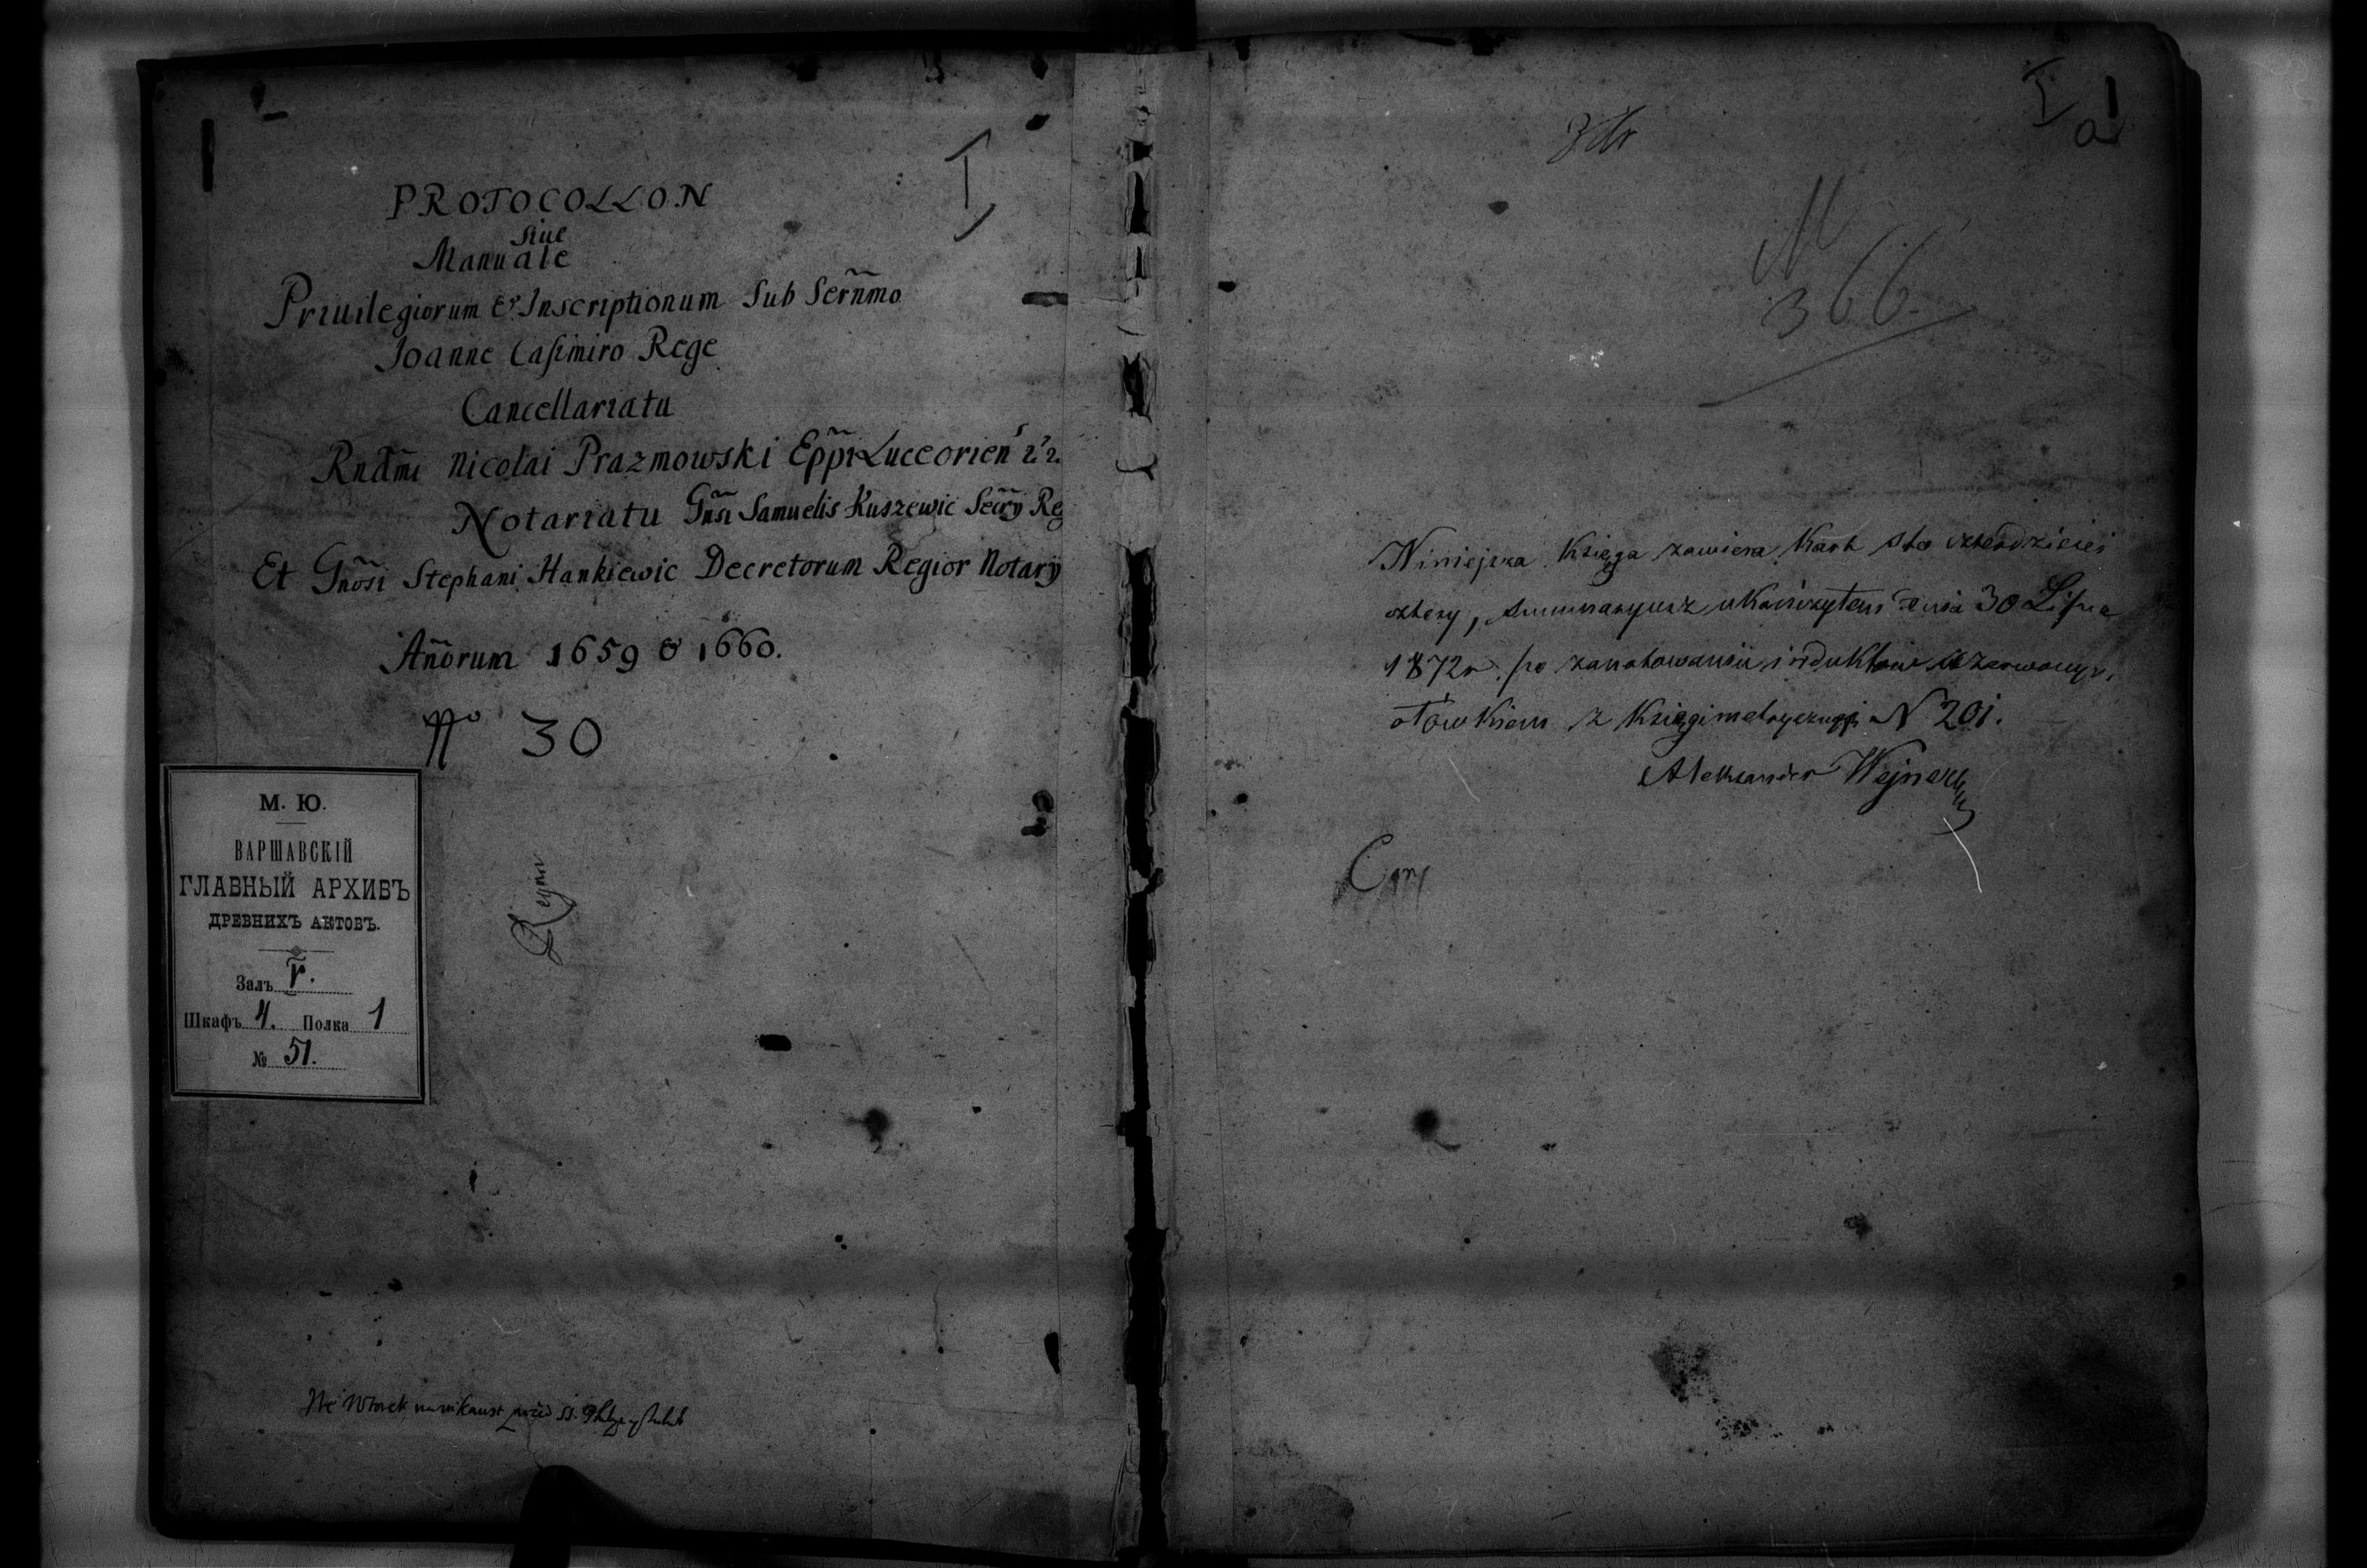 I
PROTOCOLLON
siue
Manuale
Priuilegiorum & Inscriptionum Sub Serñmo
Joanne Casimiro Rege
Cancellariatu
Rndm̃i Nicolai Prazmowski Epp̃i Luceorien̄
Notariatu Gñsi Samuelis Kuszewic Secr̃y Reg
Et Gñosi Stephani Hankiewic Decretorum Regior Notarÿ
Añorum 1659 & 1660.
No 30
М. Ю.
ВАРШАВСКІЙ
ГЛАВНЫЙ АРХИВЪ
ДРЕВНИХЪ АКТОВЪ.
Залъ V.
Шкафъ 4. Полка 1
№ 51.
We Wtorek
I 1
a
N
366.
Niniejsza Księga zawiera Kart sto czterdzieści
cztery, summaryusz ukończyłem dnia 30 Lipca
1872 r. po zanotowaniu induktów
ołówkiem z Księgi metrycznej N 201.
Aleksander Wejnert